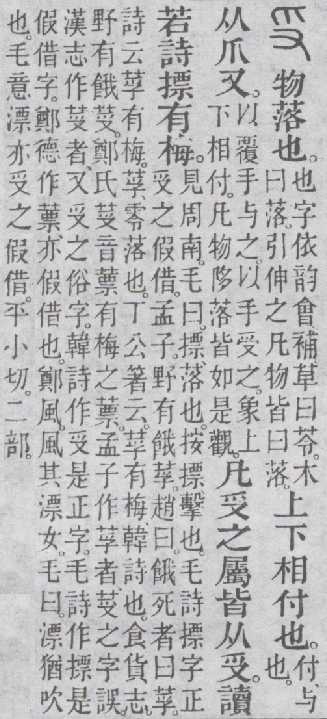 物落也。也字依韵會補。草曰苓。木
曰落。引伸之凡物皆曰落。
上下相付也。付、与
也。
从爪又。以覆手与之。以手受之。象上
下相付。凡物陊落皆如是觀。
凡𠬪之屬皆从𠬪。讀
若詩摽有梅。見周南。毛曰。摽落也。按摽擊也。毛詩摽字正
𠬪之假借。孟子。野有餓莩。趙曰。餓死者曰莩。
詩云。莩有梅。莩、零落也。丁公箸云。莩有梅韓詩也。食貨志。
野有餓𦭼。鄭氏𦭼音蔈有梅之蔈。孟子作莩者𦭼之字誤。
漢志作𦭼者、又𠬪之俗字。韓詩作𠬪是正字。毛詩作摽是
假借字。鄭德作蔈、亦假借也。鄭風。風其漂女。毛曰。漂猶吹
也。毛意漂亦𠬪之假借。平小切。二部。